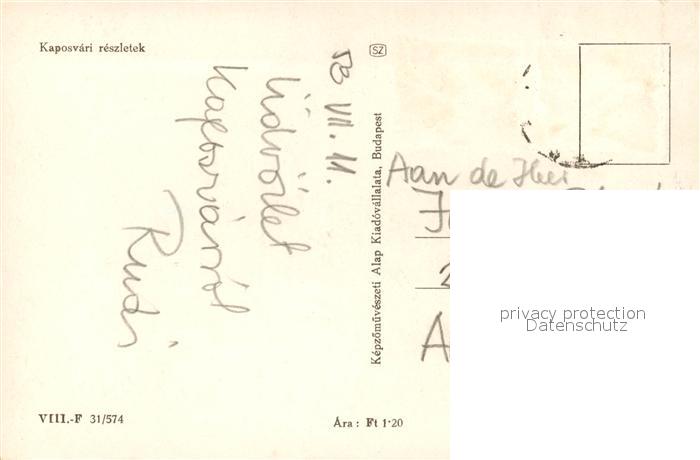 Kaposvári részletek
SZ
VII. 11.
Üdvözlet
Kaposvárról
Rudi
Képzőművészeti Alap Kiadóvállalata, Budapest
Aan de
privacy protection
Datenschutz
VIII.-F 31/574
Ára : Ft 1·20